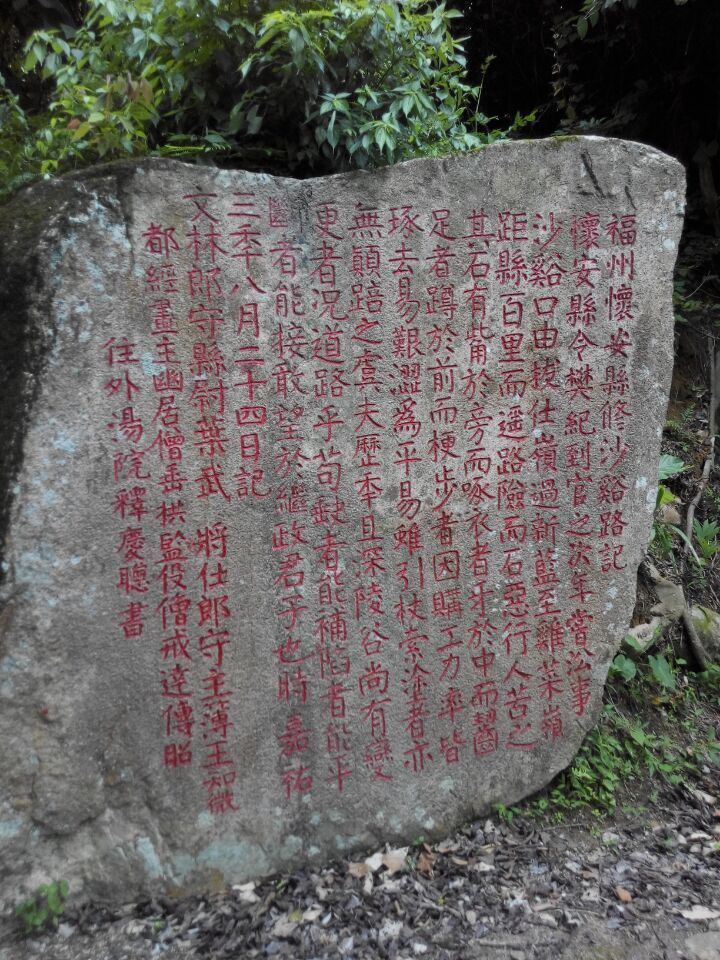 福州懷安縣修沙谿路記
懷安縣令樊紀到官之次年嘗沿事
沙谿口由拔仕嶺過新藍至雞菜嶺
距縣百里而遥路險而石惡行人苦之
其石有觜於旁而啄衣者牙於中而齧
足者蹲於前而梗步者因購工力率皆
琢去易艱澀爲平易雖引杖索塗者亦
無顛踣之虞夫歷年且深陵谷尚有變
更者況道路乎苟缺者能補陷者能平
者能接敢望於繼政君子也時嘉祐
三年八月二十四日記
文林郎守縣尉葉武 將仕郎守主薄王知微
都經畫主幽居僧垂拱監役僧戒達傳昭
住外湯院釋慶聰書